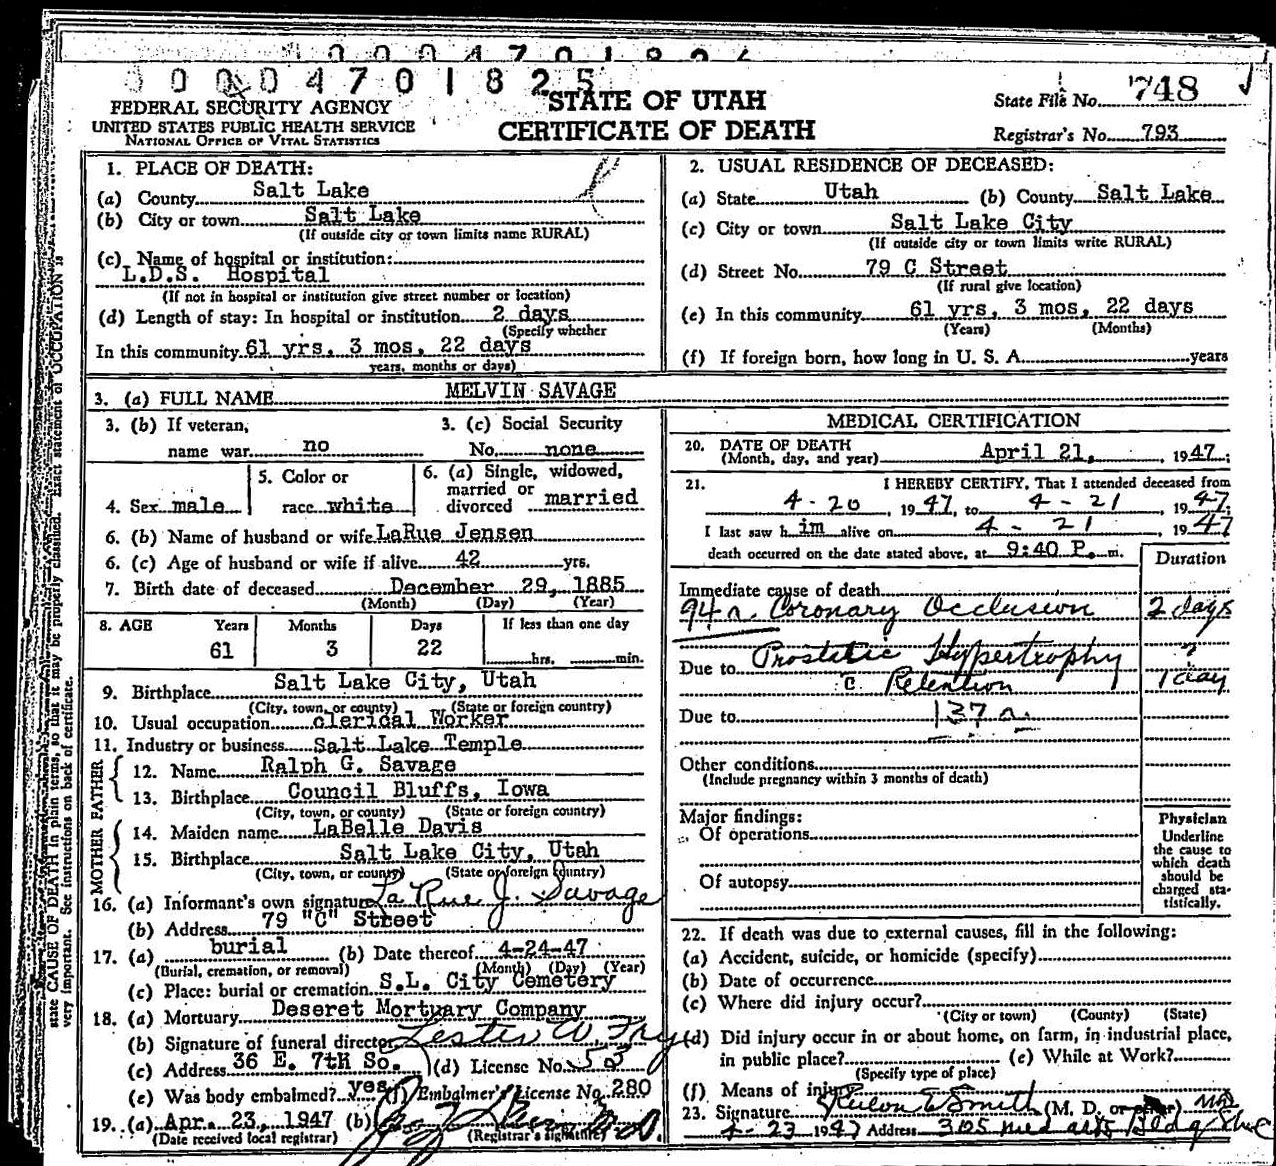 0 0 0 4 7 0 1 8 2 5
FEDERAL SECURITY AGENCY
UNITED STATES PUBLIC HEALTH SERVICE
NATIONAL OFFICE OF VITAL STATISTICS
STATE OF UTAH
CERTIFICATE OF DEATH
State File No. 748
Registrar's No. 793
1. PLACE OF DEATH:
(a) County Salt Lake
(b) City or town Salt Lake
(If outside city or town limits name RURAL)
(c) Name of hospital or institution:
L.D.S. Hospital
(If not in hospital or institution give street number or location)
(d) Length of stay: In hospital or institution 2 days
(Specify whether
In this community 61 yrs, 3 mos, 22 days
years, months or days)
2. USUAL RESIDENCE OF DECEASED:
(a) State Utah (b) County Salt Lake
(c) City or town Salt Lake City
(If outside city or town limits write RURAL)
(d) Street No. 79 C Street
(If rural give location)
(e) In this community 61 yrs, 3 mos, 22 days
(Years) (Months)
(f) If foreign born, how long in U. S. A. years
3. (a) FULL NAME MELVIN SAVAGE
3. (b) If veteran,
name war no
3. (c) Social Security
No. none
4. Sex male
5. Color or
race white
6. (a) Single, widowed,
married or
divorced married
6. (b) Name of husband or wife LaRue Jensen
6. (c) Age of husband or wife if alive 42 yrs.
7. Birth date of deceased December 29, 1885
(Month) (Day) (Year)
8. AGE Years Months Days If less than one day
61 3 22 hrs. min.
9. Birthplace Salt Lake City, Utah
(City, town, or county) (State or foreign country)
10. Usual occupation clerical Worker
11. Industry or business Salt Lake Temple
FATHER
12. Name Ralph G. Savage
13. Birthplace Council Bluffs, Iowa
(City, town, or county) (State or foreign country)
MOTHER
14. Maiden name LaBelle Davis
15. Birthplace Salt Lake City, Utah
(City, town, or county) (State or foreign country)
16. (a) Informant's own signature La Rue J. Savage
(b) Address 79 "C" Street
17. (a) burial (b) Date thereof 4-24-47
(Burial, cremation, or removal) (Month) (Day) (Year)
(c) Place: burial or cremation S.L. City Cemetery
18. (a) Mortuary Deseret Mortuary Company
(b) Signature of funeral director Lester W Fry
(c) Address 36 E. 7th So. (d) License No. 53
(e) Was body embalmed? yes (f) Embalmer's License No. 280
19. (a) Apr. 23, 1947 (b)
(Date received local registrar) (Registrar's signature)
MEDICAL CERTIFICATION
20. DATE OF DEATH
(Month, day, and year) April 21, 1947;
21. I HEREBY CERTIFY, That I attended deceased from
4-20, 1947, to 4-21 1947;
I last saw him alive on 4-21, 1947
death occurred on the date stated above, at 9:40 P. m.
Duration
Immediate cause of death
94a. Coronary Occlusion 2 days
Due to Prostatic Hypertrophy ?
c Retention 1 day
Due to 137a
Other conditions
(Include pregnancy within 3 months of death)
Major findings:
Of operations
Of autopsy
Physician
Underline
the cause to
which death
should be
charged sta-
tistically.
22. If death was due to external causes, fill in the following:
(a) Accident, suicide, or homicide (specify)
(b) Date of occurrence
(c) Where did injury occur?
(City or town) (County) (State)
(d) Did injury occur in or about home, on farm, in industrial place,
in public place? (e) While at Work?
(Specify type of place)
(f) Means of injury
23. Signature Rulon E Smith (M. D. or other) MD
4-23 1947 Address 305 Med arts Bldg
state CAUSE OF DEATH in plain terms, so that it may be properly classified. Exact statement of OCCUPATION is
very important. See instructions on back of certificate.